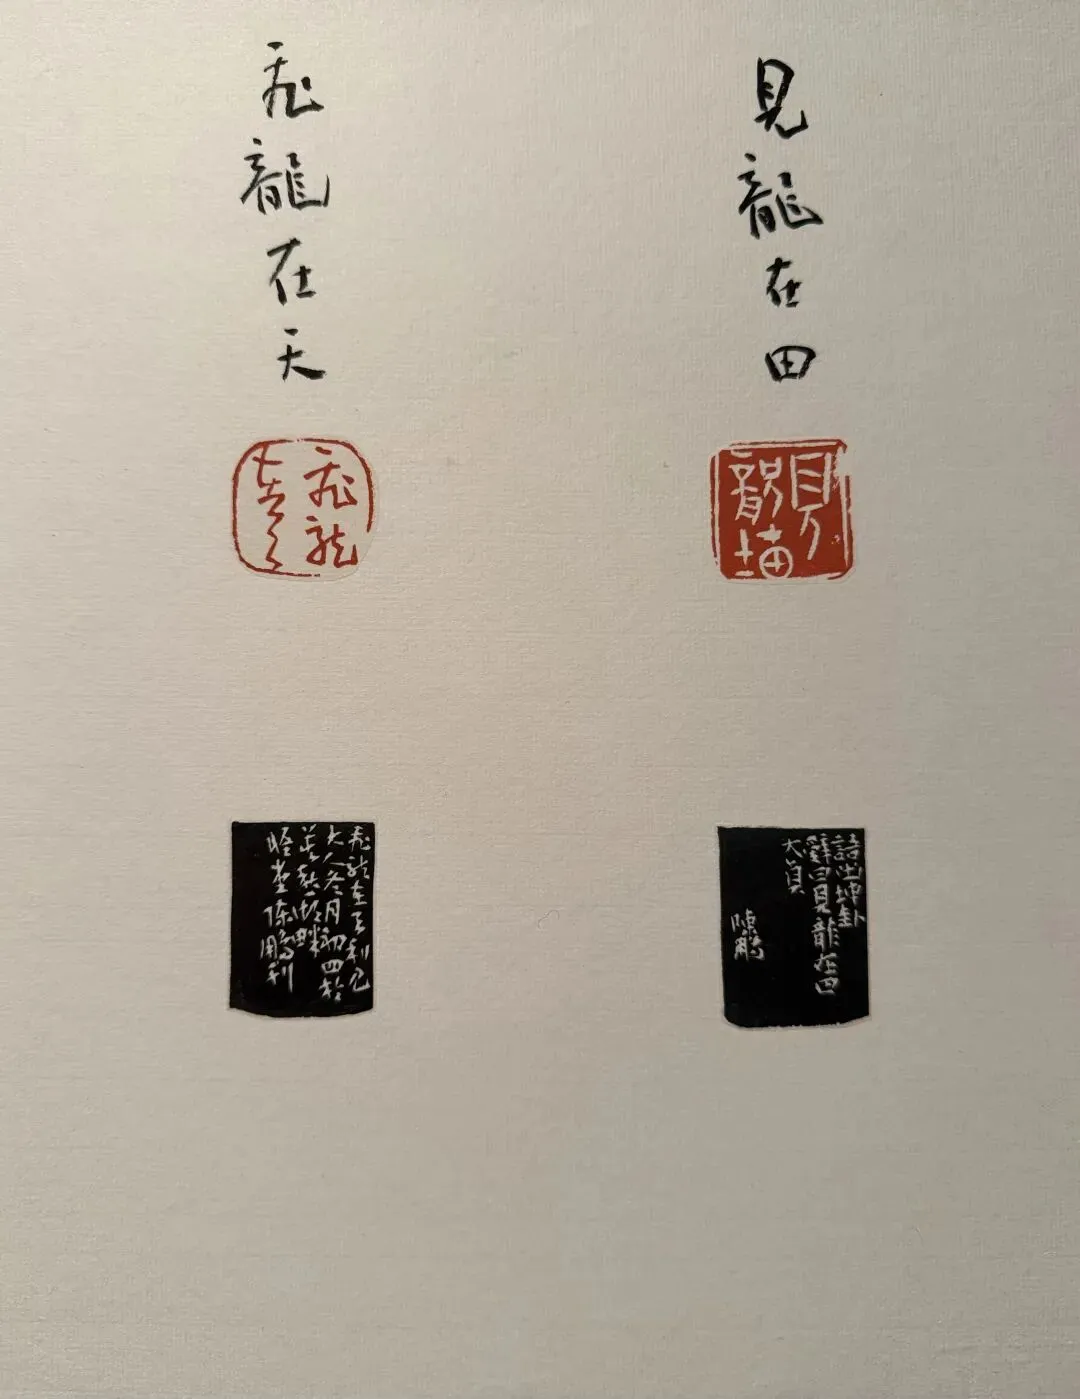 見龍在田
飛龍在天
見龍
在田
飛龍
在天
語出坤卦
辭曰見龍在田
大
陳鵬
飛龍在天利見
大人冬月初四於
堂陳鵬用刊